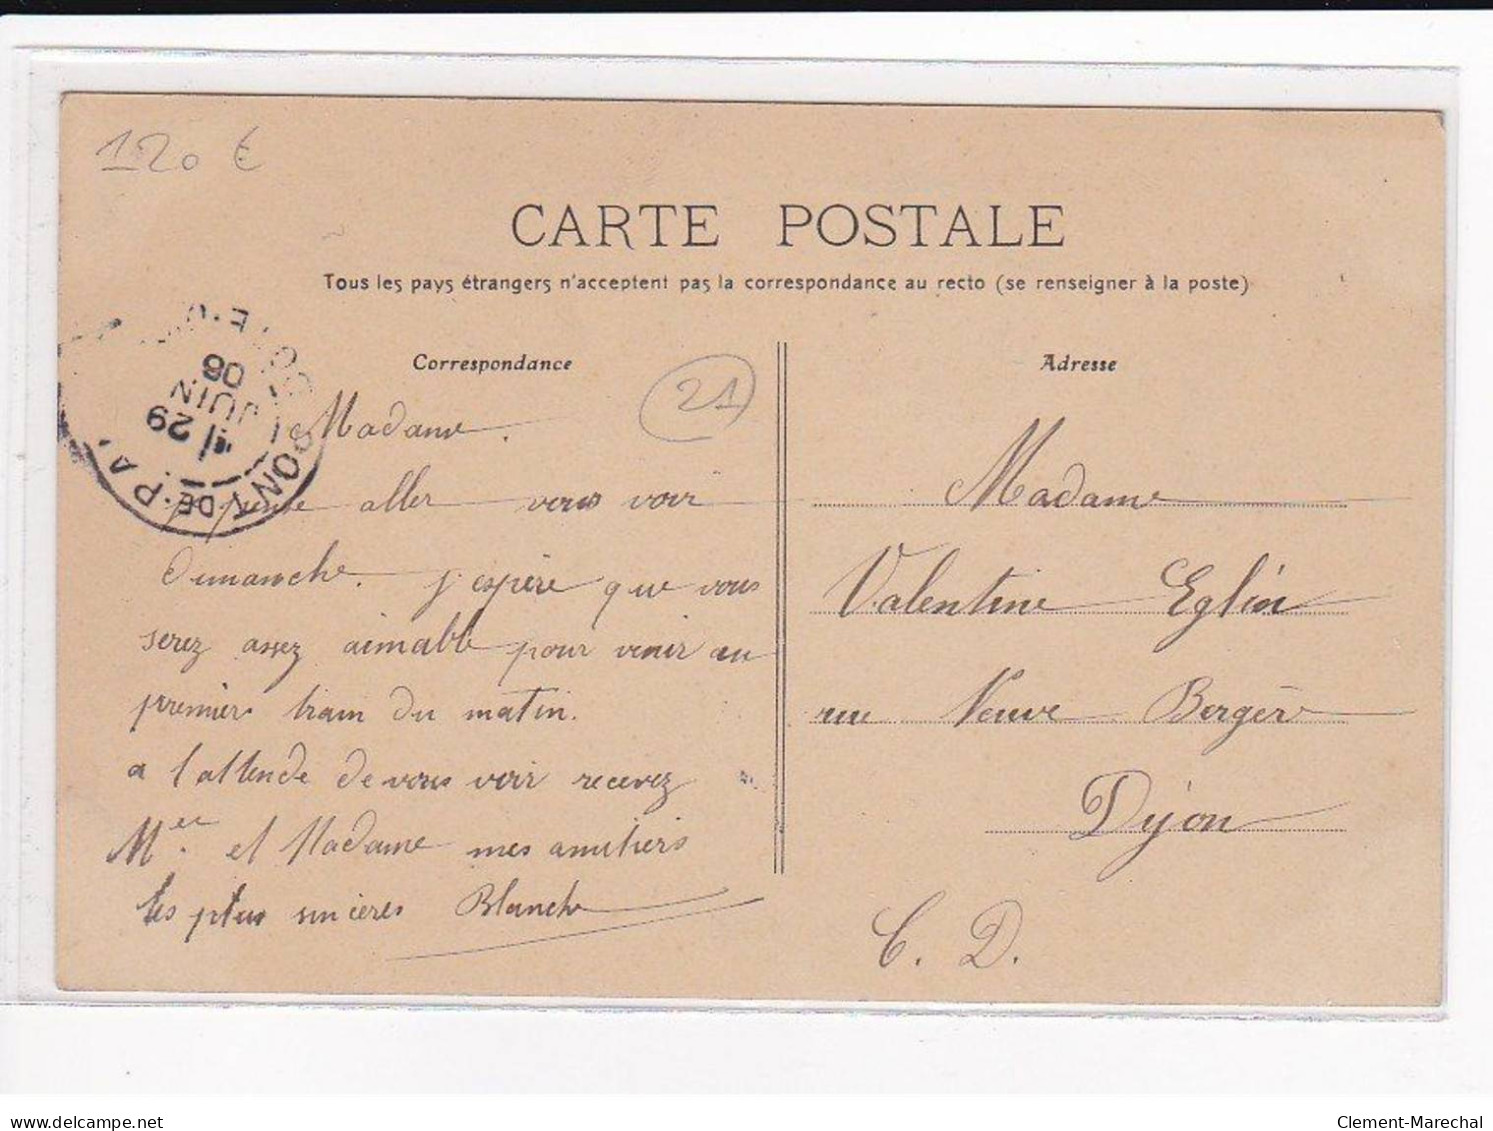 120 €
CARTE POSTALE
Tous les pays étrangers n'acceptent pas la correspondance au recto (se renseigner à la poste)
Correspondance
21
PONT DE PA
29
JUIN
06
CÔTE-D'OR
Madame.
je pense aller vous voir
Dimanche. j'espère que vous
serez assez aimable pour venir au
premier train du matin.
a l'attende de vous voir recevez
Mer et Madame mes amitiers
les plus sincères Blanche
Adresse
Madame
Valentine Eglin
rue Neuve Bergère
Dijon
C. D.
delcampe.net
Clement-Marechal